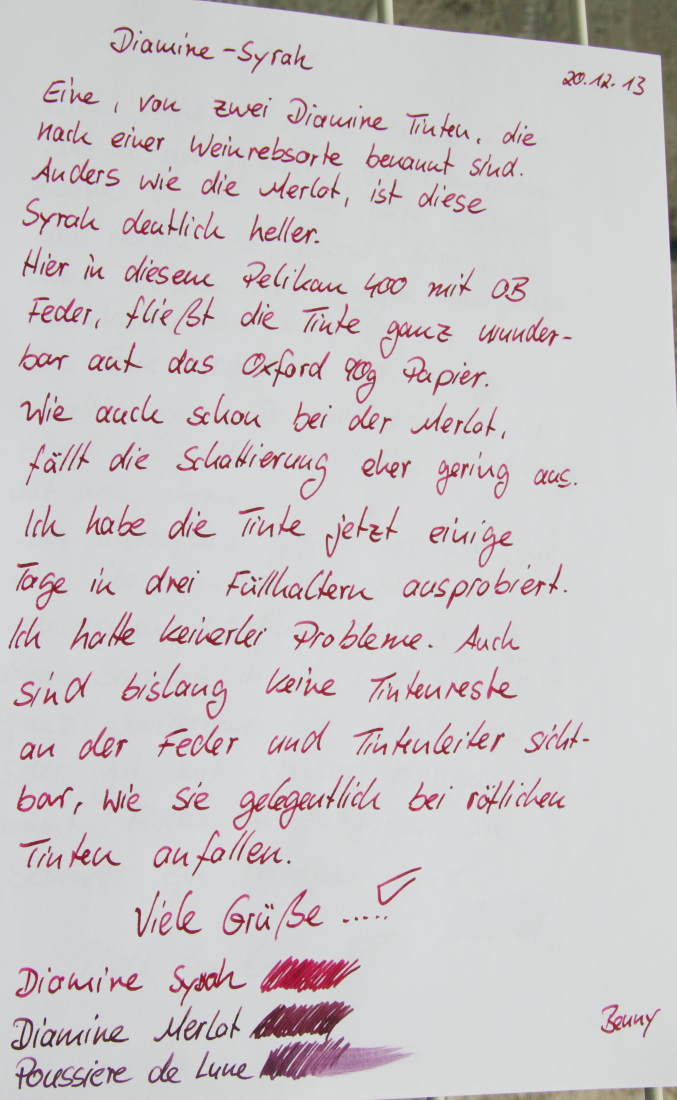 Diamine-Syrah
20.12.13
Eine, von zwei Diamine Tinten, die
nach einer Weinrebsorte benannt sind.
Anders wie die Merlot, ist diese
Syrah deutlich heller.
Hier in diesem Pelikan 400 mit OB
Feder, fließt die Tinte ganz wunder-
bar auf das Oxford 90g Papier.
Wie auch schon bei der Merlot,
fällt die Schattierung eher gering aus.
Ich habe die Tinte jetzt einige
Tage in drei Füllhaltern ausprobiert.
Ich hatte keinerlei Probleme. Auch
sind bislang keine Tintenreste
an der Feder und Tintenleiter sicht-
bar, wie sie gelegentlich bei rötlichen
Tinten anfallen.
Viele Grüße .....
Diamine Syrah
Diamine Merlot
Benny
Poussiere de Lune